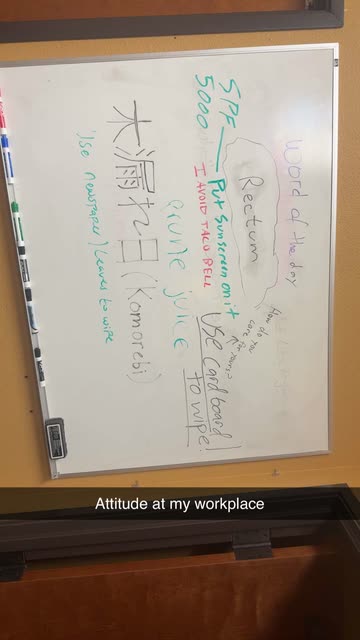 Word of the day
Rectum
How do you
care
for yours
SPF
5000
Put Sunscreen on it
I AVOID TACO BELL
USE cardboard
to wipe!
prune juice
木漏れ日 (Komorebi)
Use newspaper/leaves to wipe
Attitude at my workplace